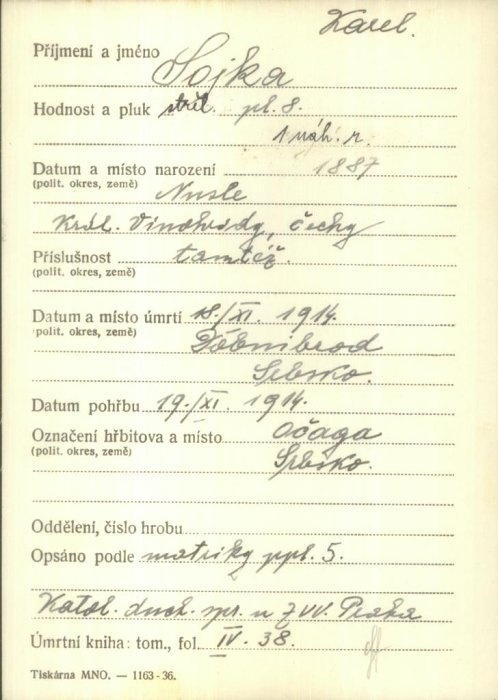 Karel.
Příjmení a jméno Sojka
Hodnost a pluk střel. pl. 8.
1 náh. r.
Datum a místo narození 1887
(polit. okres, země) Nusle
Král. Vinohrady, Čechy
Příslušnost tamtéž.
(polit. okres, země)
Datum a místo úmrtí 18./XI. 1914.
(polit. okres, země)
Srbsko.
Datum pohřbu 19./XI. 1914.
Označení hřbitova a místo Očaga
(polit. okres, země) Srbsko.
Oddělení, číslo hrobu
Opsáno podle matriky ppl. 5.
Katol. duch. spr. u ZVV. Praha
Úmrtní kniha: tom., fol. IV. 38.
Tiskárna MNO. — 1163-36.